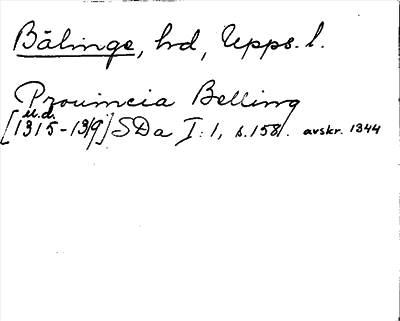 Bälinge, hd, Upps. l.
Provincia Belling
u.d.
[1315-1319] SDa I:1, s.158. avskr. 1344